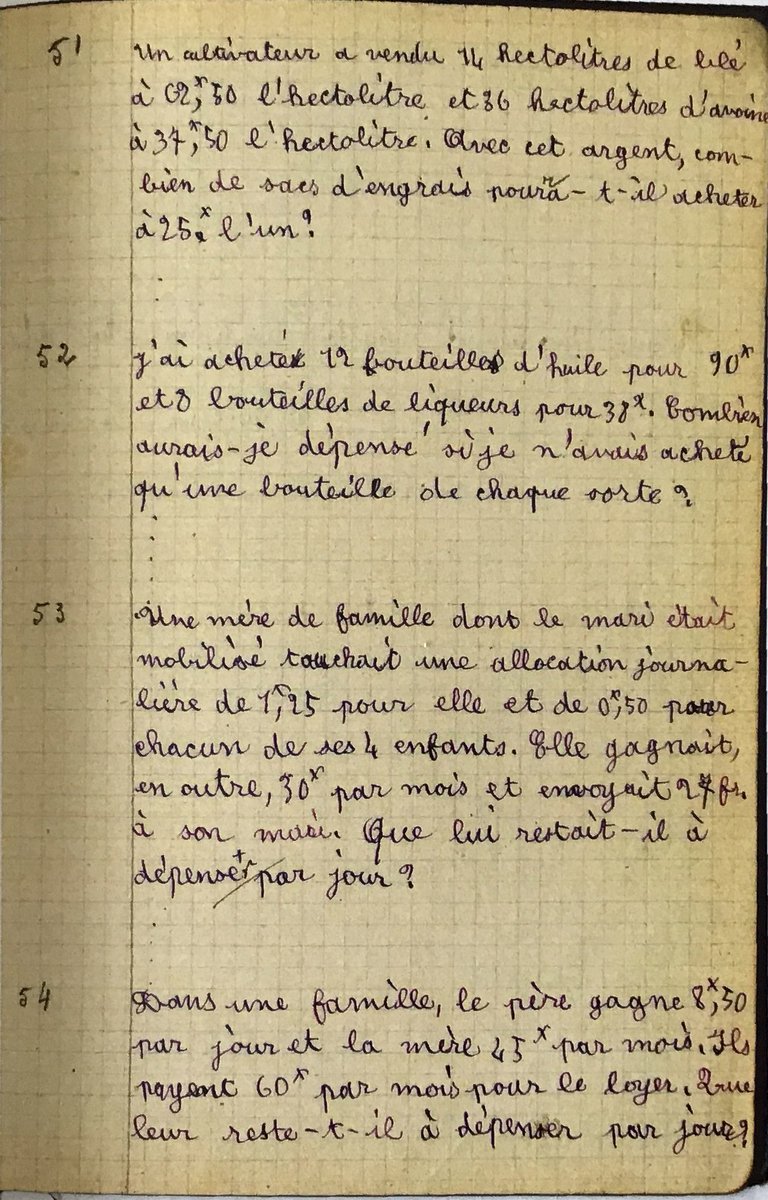 51
Un cultivateur a vendu 14 hectolitres de blé
à 62ˣ,50 l'hectolitre et 36 hectolitres d'avoine
à 37ˣ,50 l'hectolitre. Avec cet argent, com-
bien de sacs d'engrais poura-t-il acheter
à 25ˣ l'un?
52
J'ai acheté 12 bouteilles d'huile pour 90ˣ
et 8 bouteilles de liqueurs pour 38ˣ. Combien
aurais-je dépensé si je n'avais acheté
qu'une bouteille de chaque sorte?
53
Une mère de famille dont le mari était
mobilisé touchait une allocation journa-
lière de 1ˣ,25 pour elle et de 0ˣ,50 pour
chacun de ses 4 enfants. Elle gagnait,
en outre, 30ˣ par mois et envoyait 27 fr.
à son mari. Que lui restait-il à
dépenser par jour?
54
Dans une famille, le père gagne 8ˣ,50
par jour et la mère 45ˣ par mois. Ils
payent 60ˣ par mois pour le loyer. Que
leur reste-t-il à dépenser par jour?